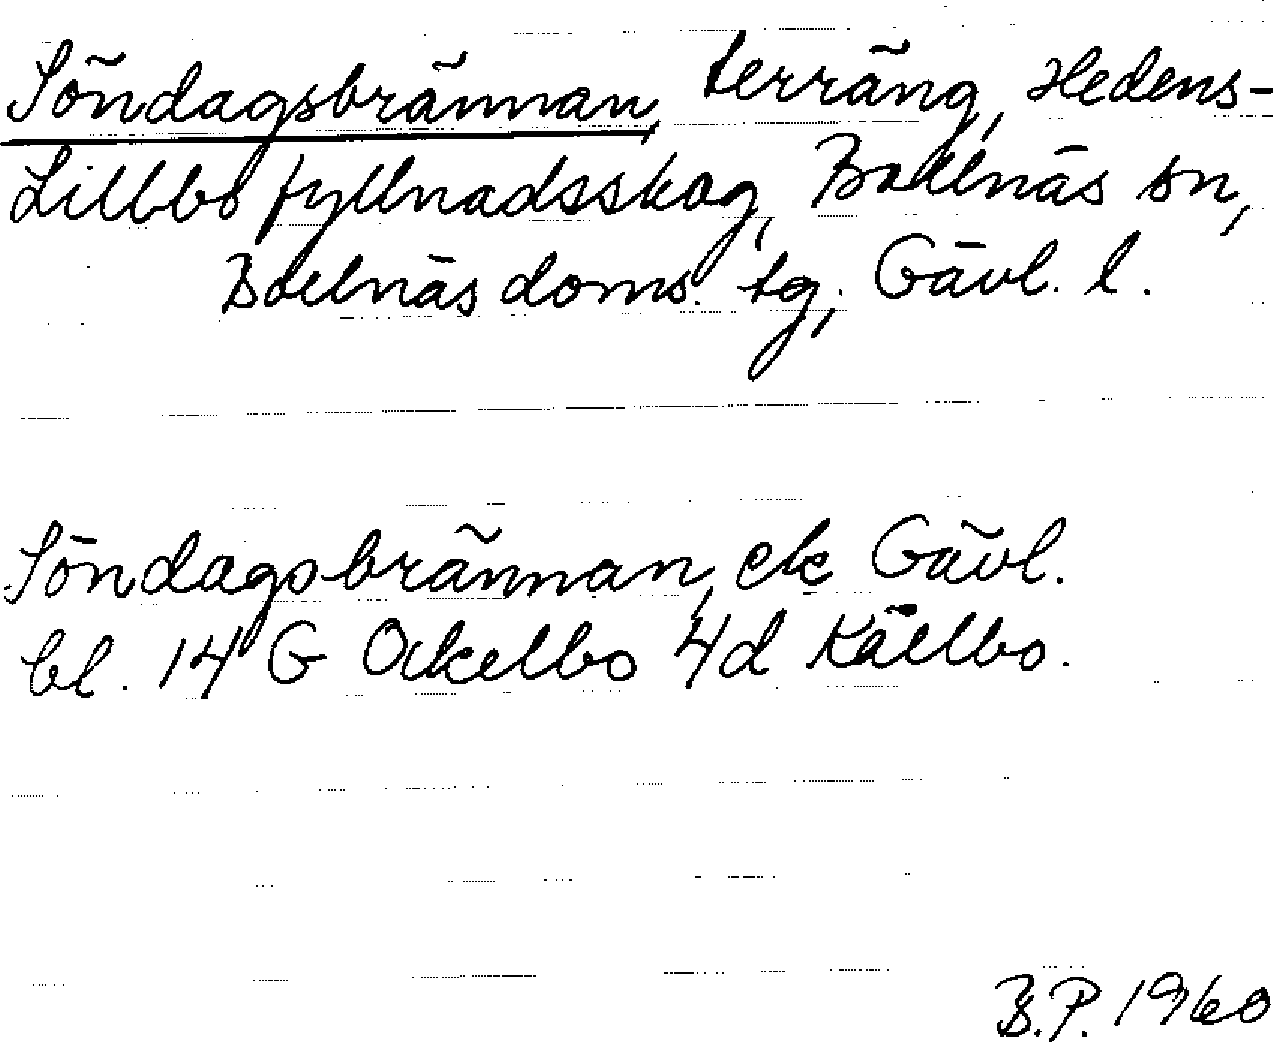 Söndagsbrännan, terräng, Hedens-
Lillbo fyllnadsskog, Bollnäs sn,
Bollnäs doms. tg, Gävl. l.
Söndagsbrännan, ek Gävl.
bl. 14 G Ockelbo 4d Källbo.
B.P. 1960